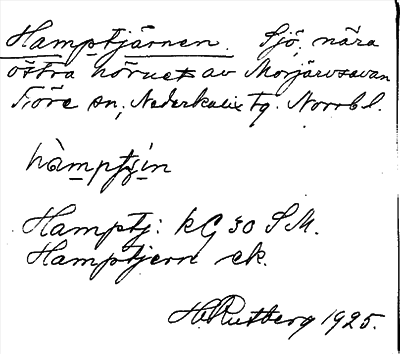 Hamptjärnen. Sjö, nära
östra hörnet av Morjärvsavan
Töre sn, Nederkalix tg. Norrb l.
hàmptjin
Hamptj: kG 30 S M.
Hamptjern ek.
H. Rutberg 1925.